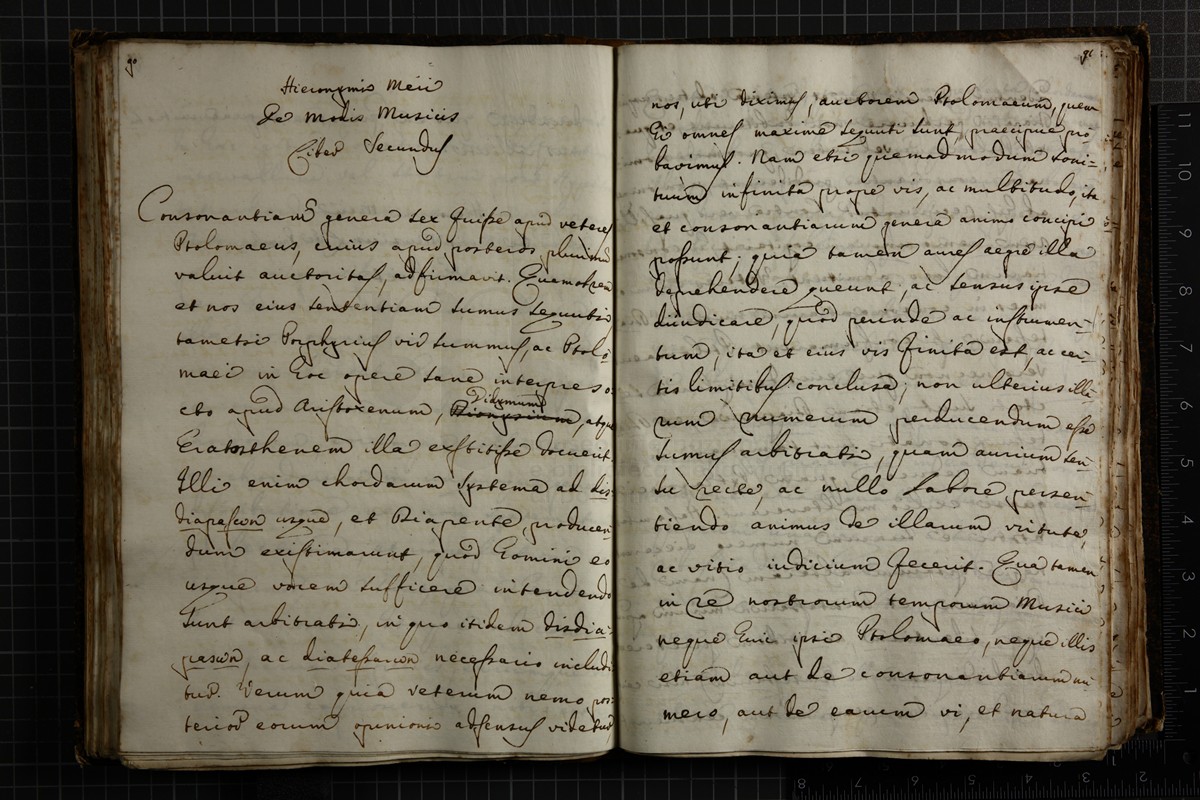 90
Hieronymis Meii
De Modis Musicis
Liber Secundus
Consonantiarum genera sex fuisse apud veteres
Ptolomaeus, cuius apud posteros plurimum
valuit auctoritas, adfirmavit. Quamobrem
et nos eius sententiam sumus sequuti,
tametsi Porphyrius vir summus, ac Ptolo-
maei in hoc opere sane interpres o-
cto apud Aristoxenum, Didymum, atque
Eratosthenem illa exstitisse docuerit.
Illi enim chordarum systema ad dis
diapason usque, et Diapente, producen-
dum existimarunt, quod homini eo
usque vocem sufficere intendendo
sunt arbitrati, in quo itidem disdia-
pason, ac diatessaron necessario includi-
tur. Verum quia veterum nemo pos-
terior eorum opinioni adsensus videtur,
91
nos, ubi diximus, auctorem Ptolomaeum, quem
hi omnes maxime sequuti sunt, praecipue pro-
bavimus. Nam etsi quemadmodum soni-
tuum infinita prope vis, ac multitudo, ita
et consonantiarum genera animo concipi
possunt; quia tamen aures aegre illa
deprehendere queunt, ac sensus ipse
diiudicare, quod perinde ac instrumen-
tum, ita et eius vis finita est, ac cer-
tis limitibus conclusa; non ulterius illa-
rum numerum perducendum esse
sumus arbitrati, quam aurium sen-
su recte, ac nullo labore persen-
tiendo animus de illarum virtute,
ac vitio iudicium fecerit. Qua tamen
in re nostrorum temporum Musici
neque huic ipsi Ptolomaeo, neque illis
etiam aut de consonantiarum nu-
mero, aut de earum vi, et natura